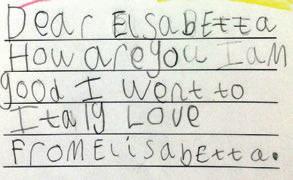 Dear ElsabEtta
How are you I am
good I went to
Italy Love
FROM ElisabEtta.